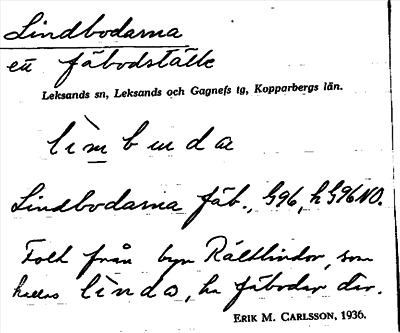 Lindbodarna
ett fäbodställe
Leksands sn, Leksands och Gagnefs tg, Kopparbergs län.
lìmbuda
Lindbodarna fäb., G96, h G96NO.
Folk från byn Rältlindor, som
kallas lìnda, ha fäbodar där.
ERIK M. CARLSSON, 1936.